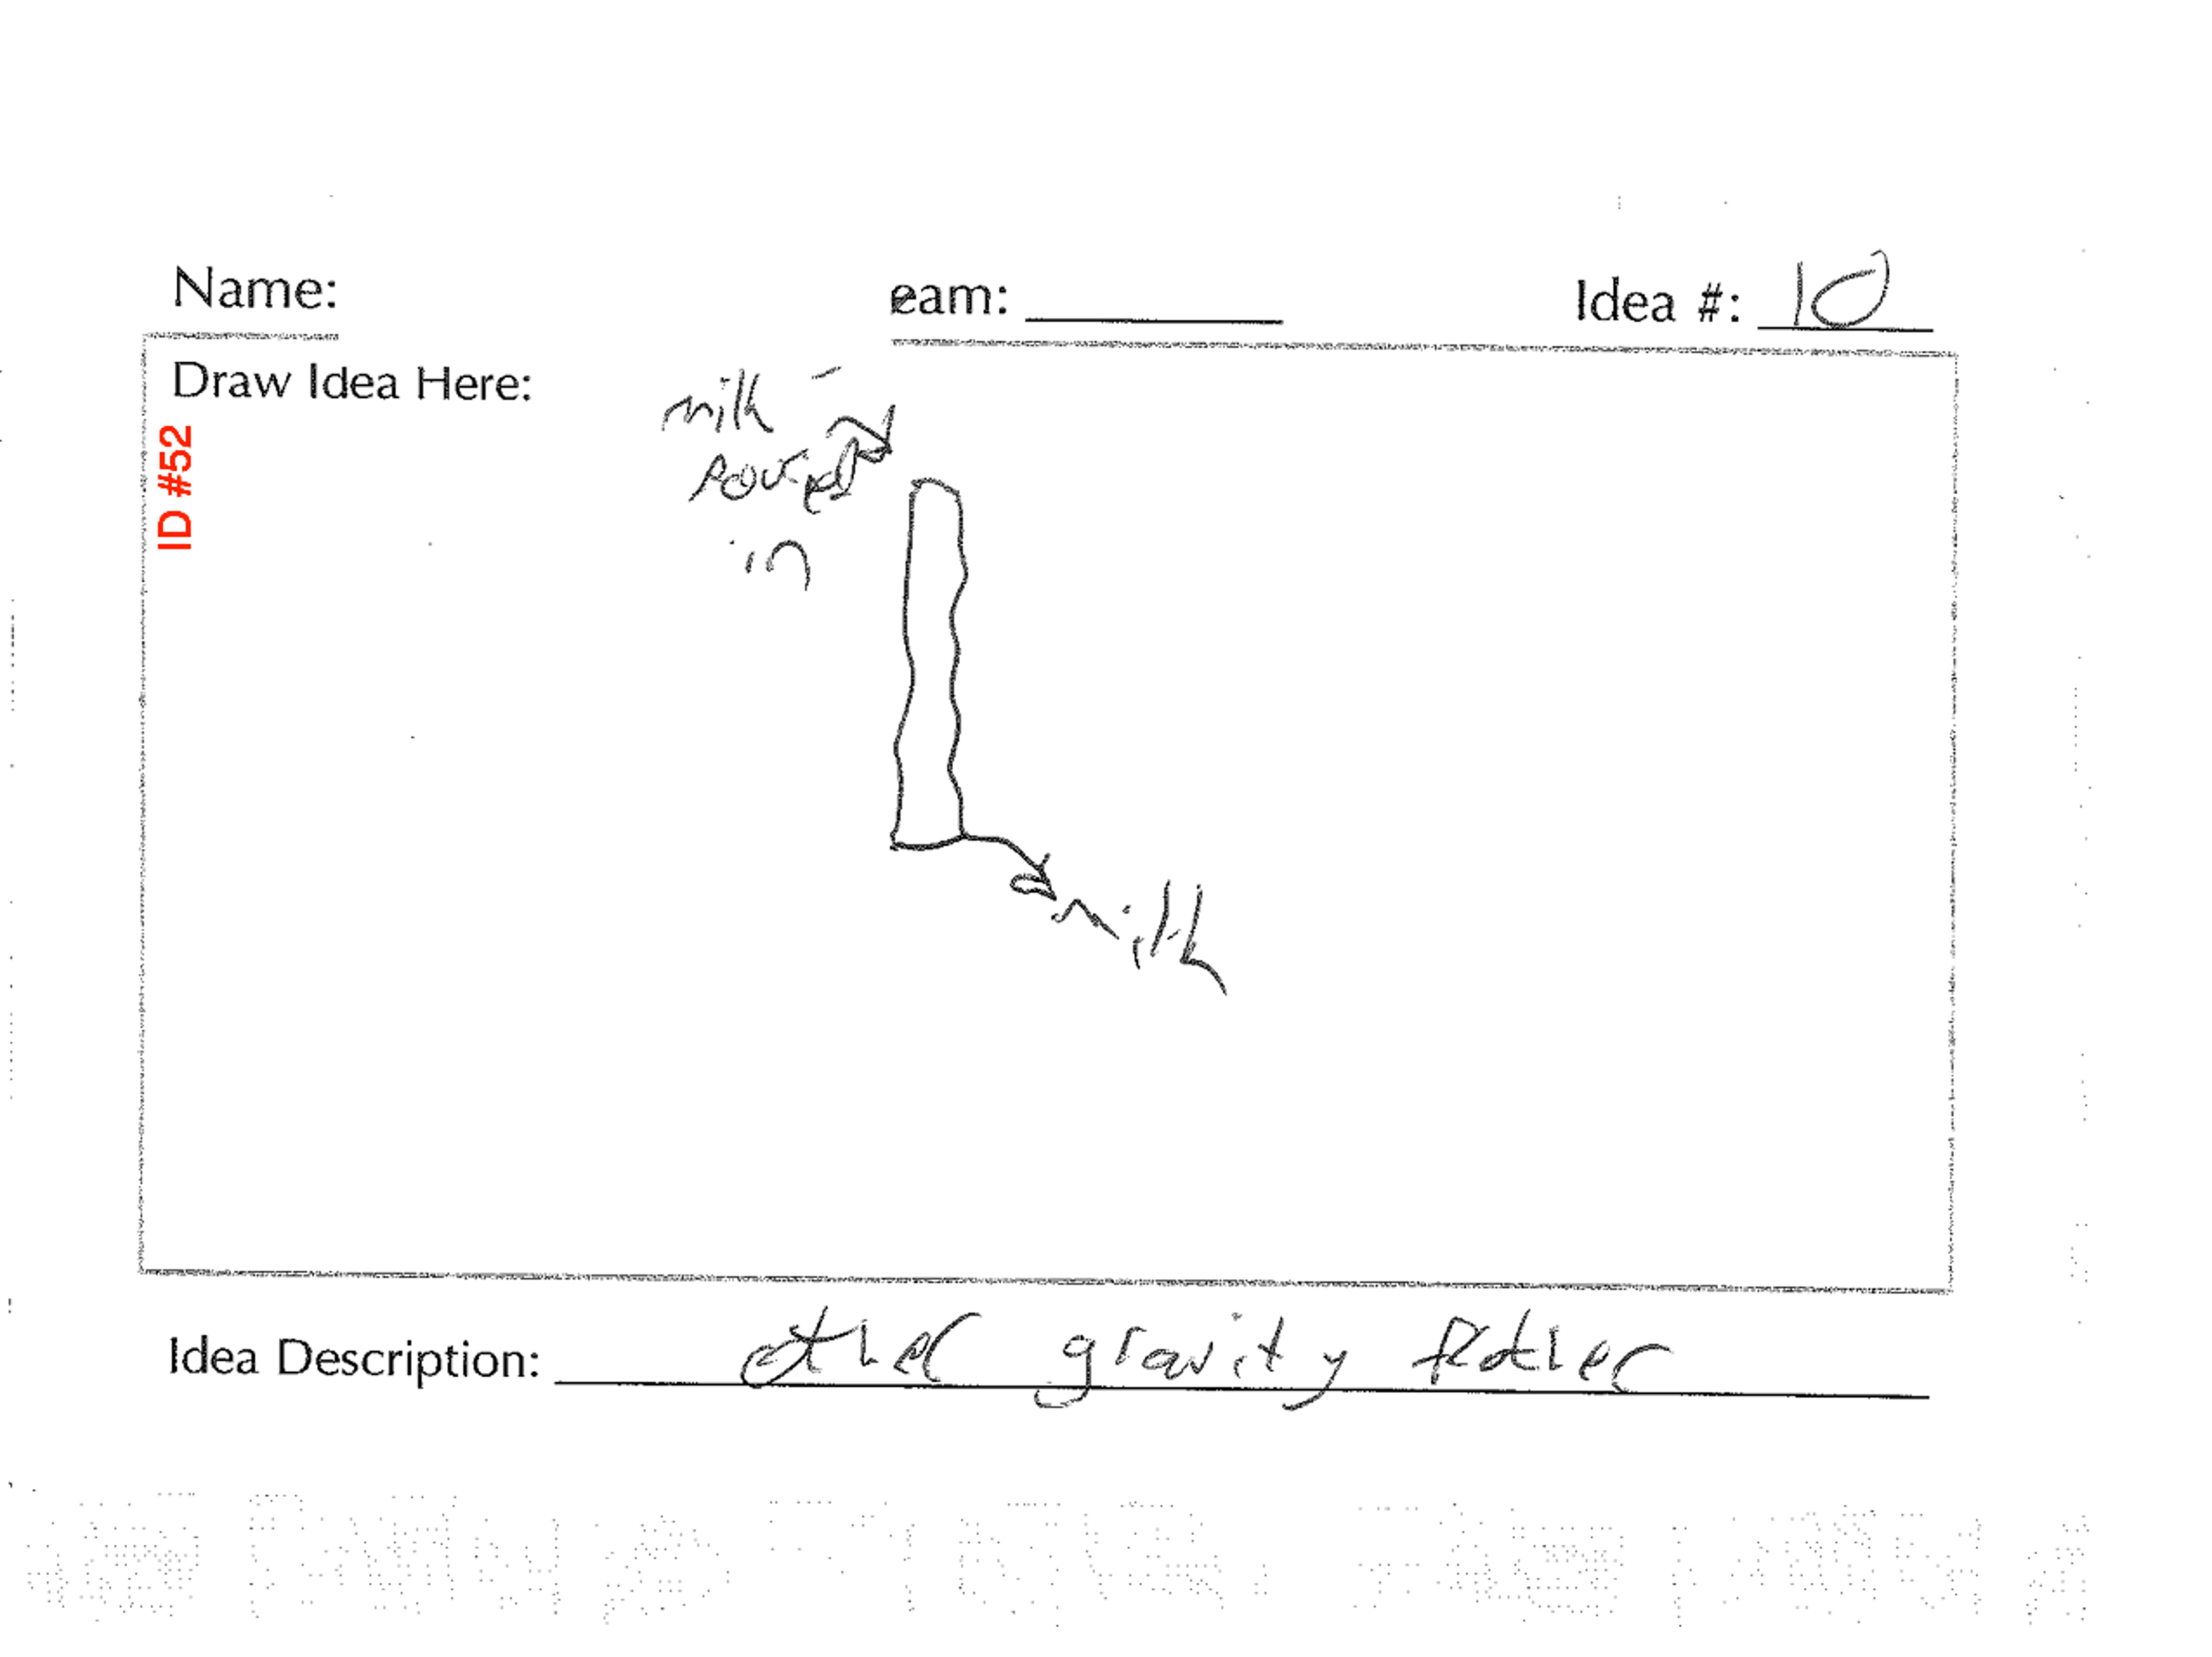 Name:
eam:
Idea #: 10
Draw Idea Here:
ID #52
milk
poured
in
milk
Idea Description: other gravity